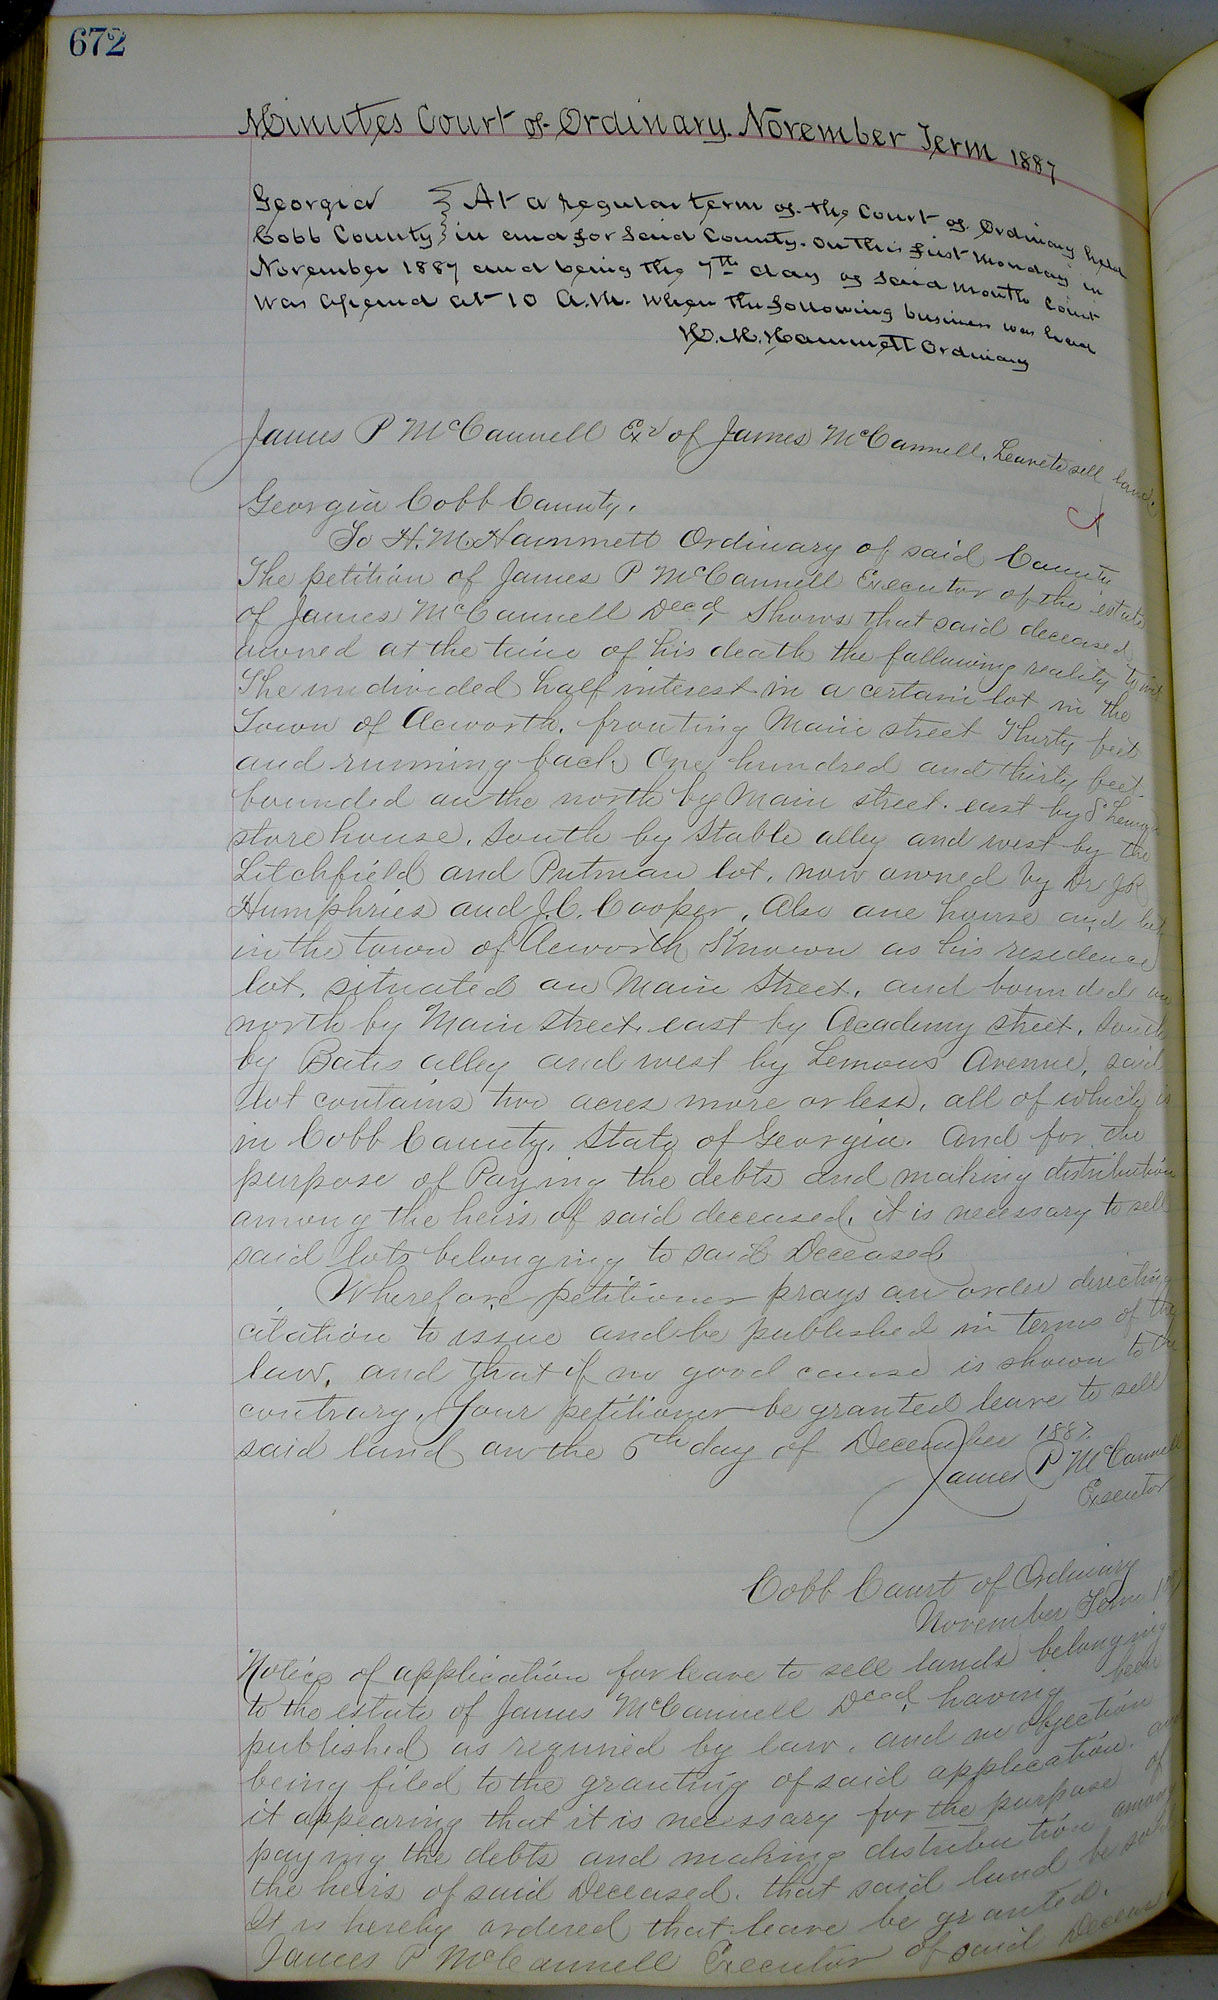 672
Minutes Court of Ordinary November Term 1887
Georgia } At a regular term of the Court of Ordinary held
Cobb County } in and for said County. on this first Monday in
November 1887 and being the 7th day of said month Court
was opened at 10 A.M. When the following business was had
H. M. Hammett Ordinary
James P McCannell Exr of James McCannell. Leave to sell land.
Georgia Cobb County.
To H. M. Hammett Ordinary of said County
The petition of James P McCannell Executor of the estate
of James McCannell Decd, Shows that said deceased
owned at the time of his death the following reality to wit
The undivided half interest in a certain lot in the
Town of Acworth, fronting Main street Thirty feet
and running back One hundred and thirty feet.
bounded on the north by Main street. east by S Lemon
store house. South by Stable alley and west by the
Litchfield and Putman lot, now owned by Dr J R
Humphries and J. C. Cooper, Also one house and lot
in the town of Acworth Known as his residence
lot, situated on Main Street, and bounded on
north by Main street. east by Academy street. South
by Bates alley and west by Lemons Avenue, said
lot contains two acres more or less, all of which is
in Cobb County, State of Georgia. And for the
purpose of Paying the debts and making distribution
among the heirs of said deceased, it is necessary to sell
said lots belonging to said Deceased
Wherefore petitioner prays an order directing
citation to issue and be published in terms of the
law, and that if no good cause is shown to the
contrary, Your petitioner be granted leave to sell
said land on the 6th day of December 1887.
James P McCannell
Executor
Cobb Court of Ordinary
November Term
Notice of application for leave to sell lands belonging
to the estate of James McCannell Decd, having been
published as required by law, and no objection
being filed to the granting of said application. and
it appearing that it is necessary for the purpose of
paying the debts and making distribution among
the heirs of said Deceased. that said land be sold
It is hereby ordered that leave be granted.
James P McCannell Executor of said Deceased